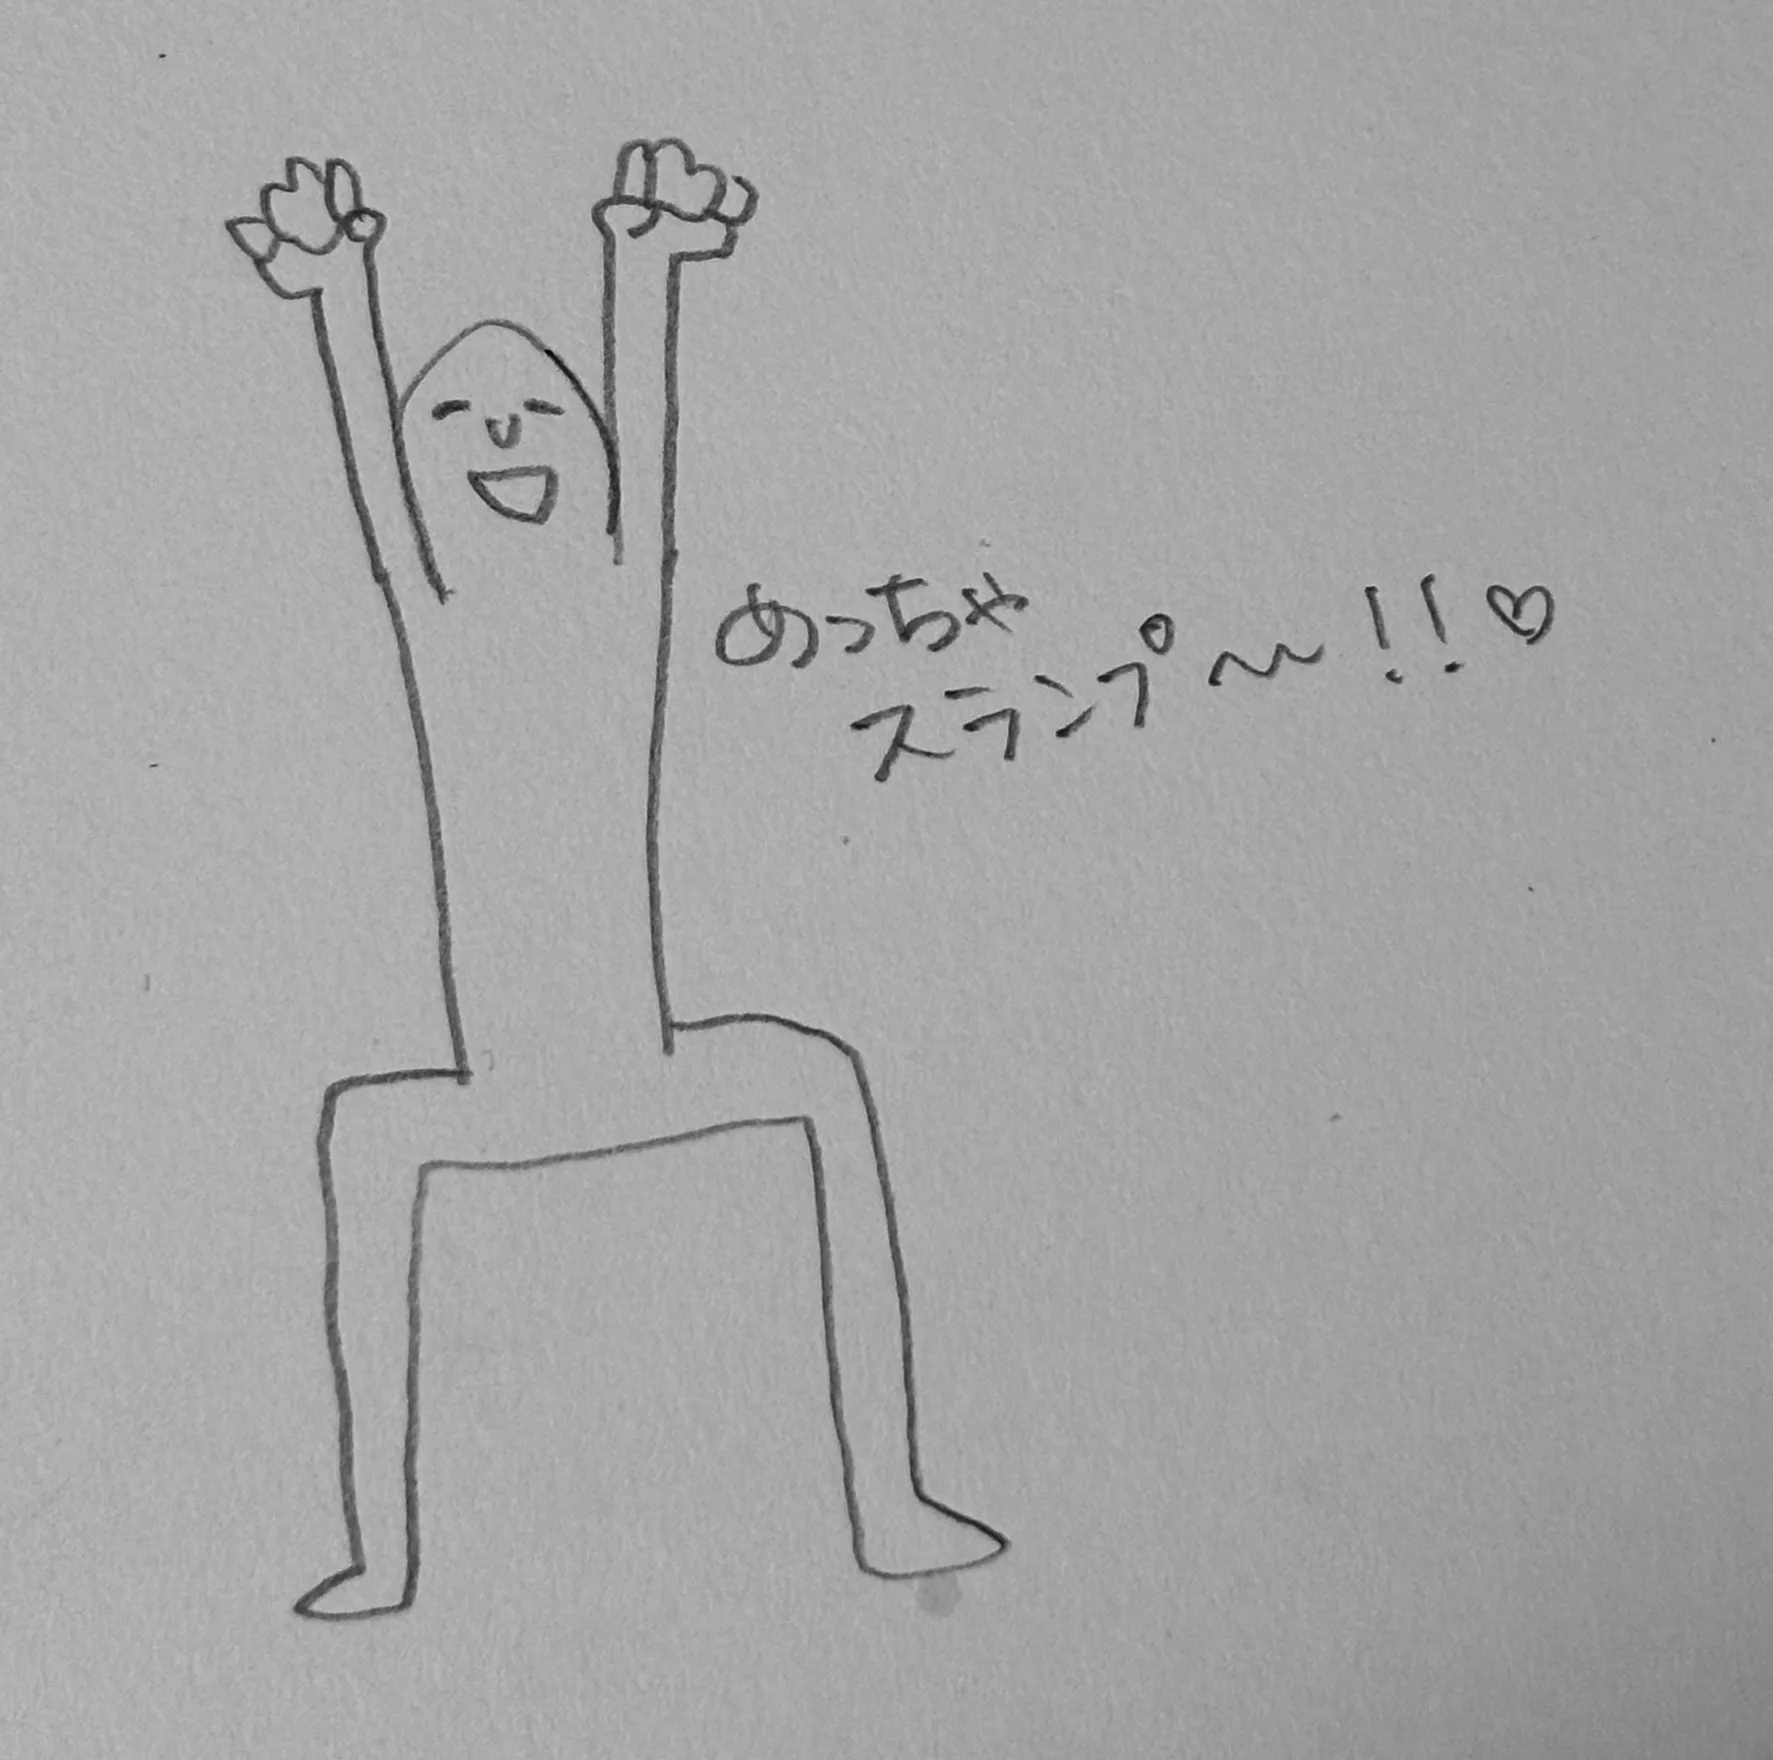 めっちゃ
スランプ〜!!♡